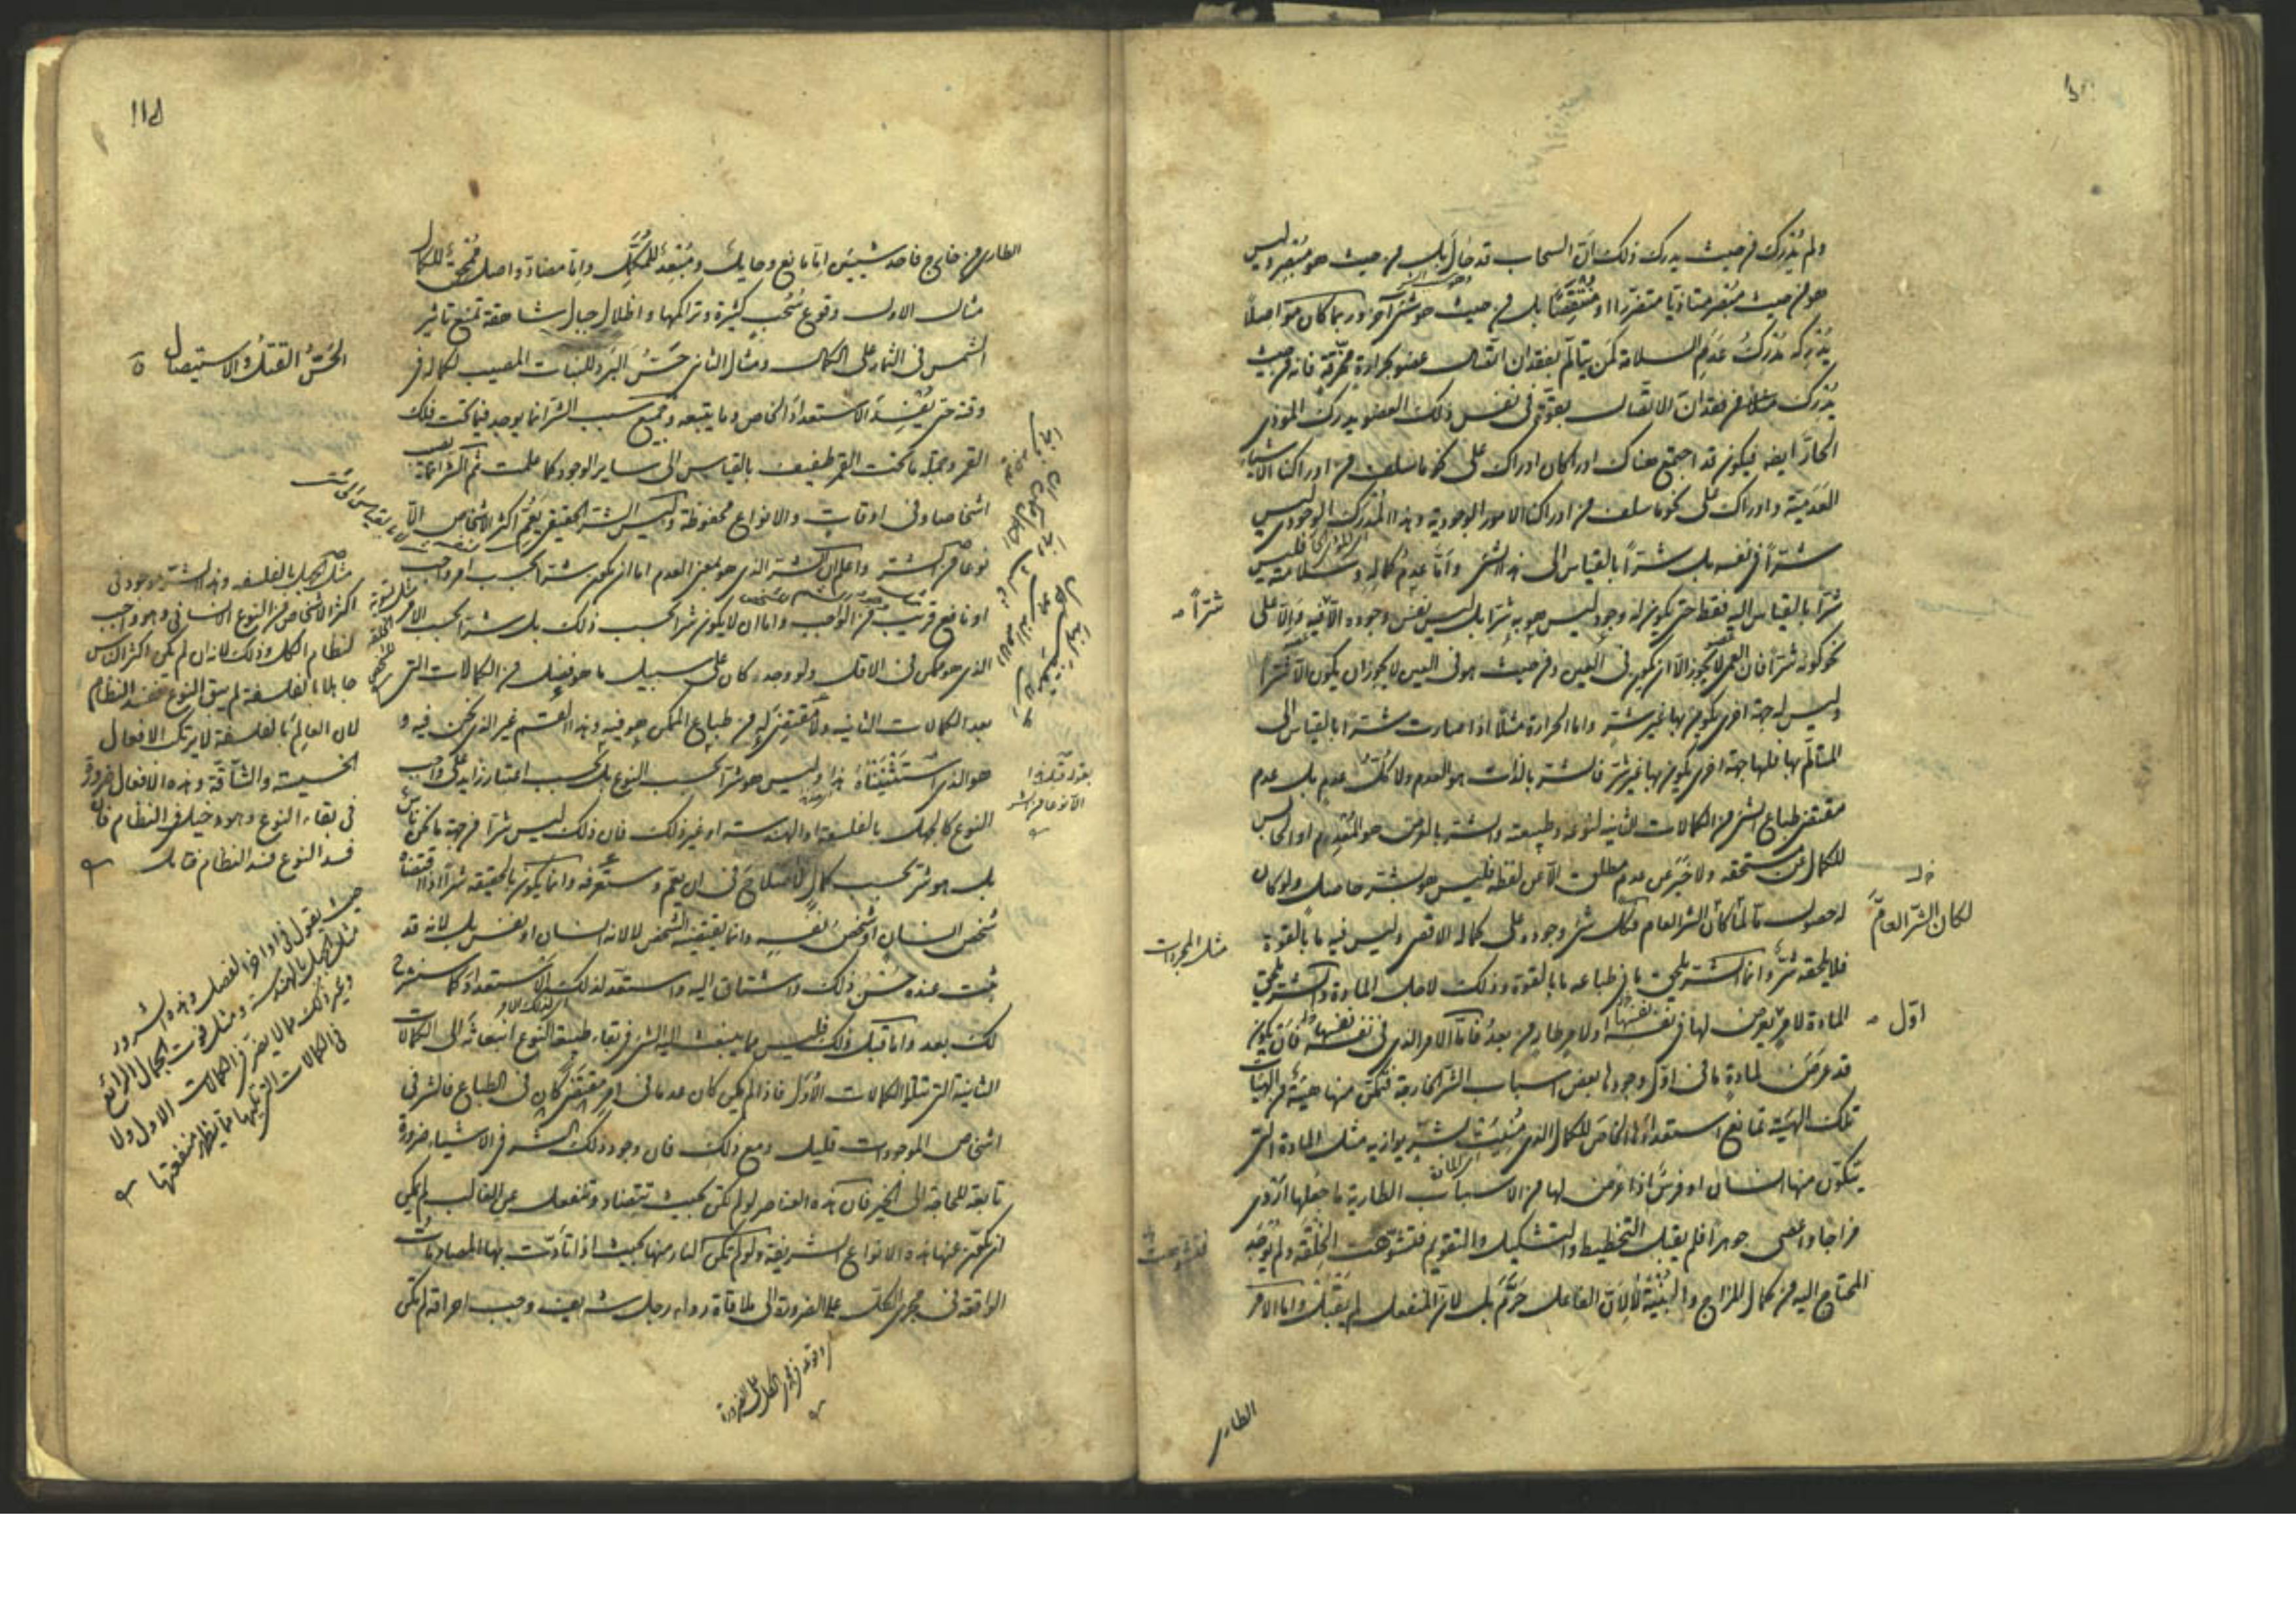 ولم يُدْرِك من حيث يدرك ذلك انّ السحاب قد حال بل من حيث هو مُبْصِر وليس
هو من حيث مُبْصِر متأذيا متضررا او منتقصا بل من حيث هو شئ آخر وربما كان مواصلا
يُدْرِكه مُدْرِكُ عدم السلامة كمن يتألّم بفقدان اتّصال عضو بحرارة ممزّقة فانه من حيث
يُدْرِك فقدان الاتصال بقوّة فى نفس ذلك العضو يدرك المؤذى
الحارّ ايضا فيكون قد اجتمع هناك ادراكان ادراك على نحو ما سلف من ادراكنا الاشياء
العَدَميّة وادراك على نحو ما سلف من ادراكنا الامور الوجودية وهذا المُدْرَك الوجودى ليس
شرّاً فى نفسه بل شرّاً بالقياس الى هذا الشئ وامّا عدم كماله وسلامته فليس
شرّا بالقياس اليه فقط حتى يكون له وجود ليس هو به شرّا بل ليس نفس وجوده الّا فيه والّا على
نحو كونه شرّاً فان العمى لا يجوز الّا ان يكون فى العين ومن حيث هو فى العين لا يجوز ان يكون الّا شرّاً
وليس له جهة اخرى يكون بها غير شرّ واما الحرارة مثلاً اذا صارت شرّا بالقياس الى
المتألّم بها فلها جهة اخرى يكون بها غير شرّ فالشر بالذات هو العدم ولا كلّ عدم بل عدم
مقتضى طباع الشئ من الكمالات الثابتة لنوعه وطبيعته والشر بالعرض هو المُعْدِم او الحابس
للكمال عن مستحقه ولا خَبَر عن عدم مطلق الّا عن لفظه فليس هو بشرّ حاصل ولو كان
له حصول مّا لكان الشرّ العام فكل شئ وجوده على كماله الاقصى وليس فيه ما بالقوة
فلا يلحقه شرّ وانما الشر يلحق ما فى طباعه ما بالقوة وذلك لاجل المادة والشر يلحق
المادة لامر يعرض لها فى نفسها او لامر طارٍ من بعدُ فامّا الامر الذى فى نفسها فان يكون
قد عرض لمادةٍ ما فى اوّل وجودها بعض اسباب الشر الخارجة فتمكّن منها هيئة من الهيئات
تلك الهيئة تمانع استعدادها الخاص للكمال الذى مُنِيَت بشرّ يوازيه مثل المادة التى
يتكوّن منها انسان او فرس اذا عرض لها من الاسباب الطارية ما جعلها اردى
مزاجا واعصى جوهرا فلم يقبل التخطيط والتشكيل والتقويم فتشوّهت الخلقة ولم يُوجَد
المحتاج اليه من كمال المزاج والبنية لا لانّ الفاعل حرّم بل لانّ المنفعل لم يَقبَل واما الامر
الطارى
شرّاً
لكان الشرّ العامّ
مثل المجردات
اوّل
الطارى من خارج فاحد شيئين امّا مانع وحايل ومُبعِد للمُكَمِّل وامّا مضادّ واصل مُمحِق للكمال
مثال الاول وقوع سُحُب كثيرة وتراكمها واظلال جبال شاهقة تمنع تاثير
الشمس فى الثمار على الكمال ومثال الثانى حَسُّ البَرد للنبات المصيب لكماله فى
وقته حتى يُفسِد الاستعداد الخاص وما يتبعه وجميع سبب الشر انما يوجد فيما تحت فلك
القمر وجملة ما تحت القمر طفيف بالقياس الى ساير الوجود كما علمت ثم الشر انما يصيب
اشخاصا وفى اوقات والانواع محفوظة وليس الشر الحقيقى يعُمّ اكثر الاشخاص الّا
نوعا من الشر واعلم ان الشر الذى هو بمعنى العدم اما ان يكون شرّا بحسب امر واجب
او نافع قريب من الواجب واما ان لا يكون شرا بحسب ذلك بل شرّا بحسب الامر
الذى هو ممكن فى الاقل ولو وجد كان على سبيل ما هو فضل من الكمالات التى
بعد الكمالات الثانية ولا مقتضى له من طباع الممكن هو فيه وهذا القسم غير الذى نحن فيه و
هو الذى استثنيناه هذا وليس هو شرّا بحسب النوع بل بحسب اعتبار زايد على واجب
النوع كالجهل بالفلسفة او الهندسة او غير ذلك فان ذلك ليس شرّا من جهة ما نحن ناس
بل هو شرّ بحسب كمال الاصلاح فى ان يعمّ وستعرفه وانما يكون بالحقيقة شرّا اذا اقتضاه
شخص انسان او شخصُ نفسِه وانما يقتضيه الشخص لا لانه انسان او نفس بل لانه قد
ثبت عنده حُسْن ذلك واشتاق اليه واستعدّ لذلك الاستعداد كما سنشرح
لك بعد واما قبل ذلك فليس مما ينبعث اليه الشئ فى بقاء طبيعة النوع انبعاثَه الى الكمالات
الثانية التى تتلو الكمالات الأُوَل فاذا لم يكن كان عدما فى امر مقتضى كان فى الطباع فالشر فى
اشخاص الموجودات قليل ومع ذلك فان وجود ذلك الشر فى الاشياء ضرورة
تابعة للحاجة الى الخير فان هذه العناصر لو لم تكن بحيث تتضاد وتنفعل عن الغالب لم يكن
ان تكون عنها هذه الانواع الشريفة ولو لم تكن النار منها بحيث اذا تأدّت بها المصادمات
الواقعة فى مجرى الكل على الضرورة الى ملاقاة رداء رجل شريف وجب احراقه لم تكن
الحَسُّ القتل والاستيصال
مثل الجهل بالفلسفة وهذا الشر موجود فى
اكثر الاشخاص من النوع الانسانى وهو واجب
لنظام الكل وذلك لانه ان لم يكن اكثر الناس
جاهلا بالفلسفة لم يبق النوع فسد النظام
لان العالِم بالفلسفة لا يرتكب الافعال
الخسيسة والشاقّة وهذه الافعال ضرورة
فى بقاء النوع وله دخيل فى النظام فان
فسد النوع فسد النظام فتامل
حيث يقول فى اواخر الفصل وهذه الشرور
مثل الجهل بالهندسة ومثل فوت الجمال الرائع
وغير ذلك مما لا يضر فى الكمالات الاول ولا
فى الكمالات التى تليها مما يظهر منفعتها
بقوله قبل هذا
الّا نوعا من الشر